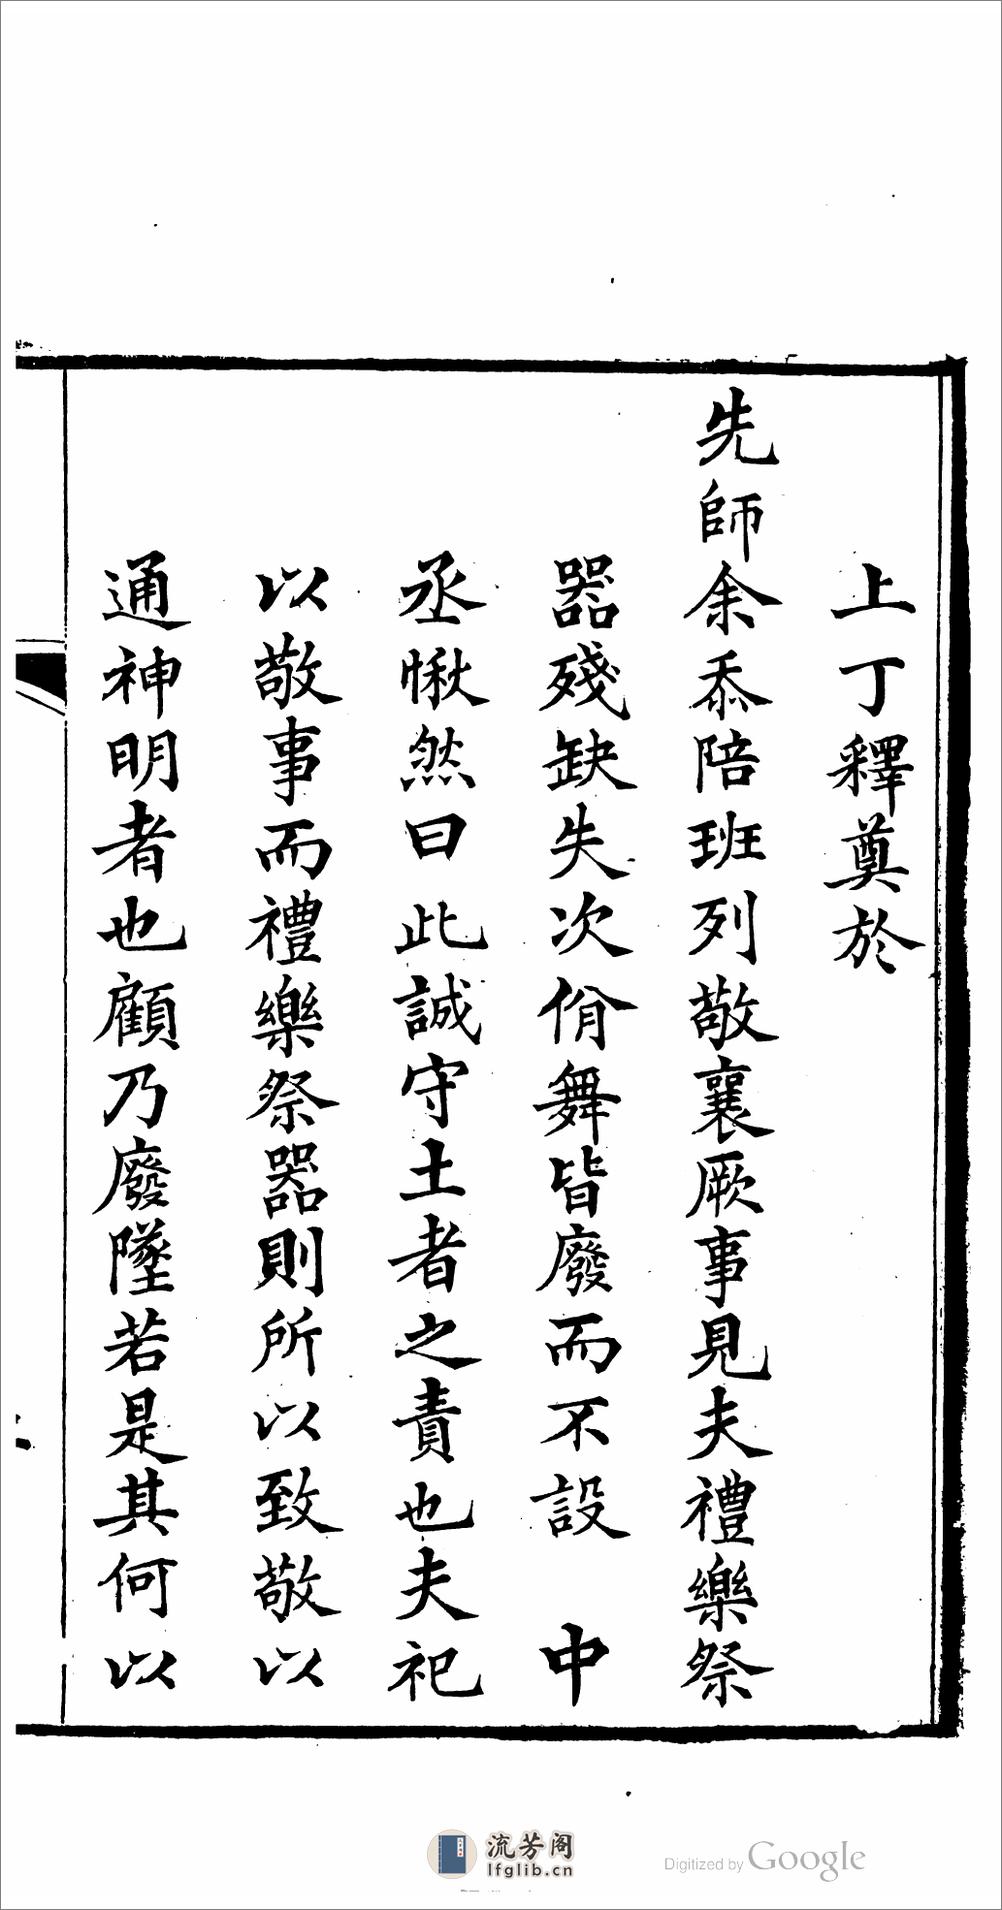 上丁釋奠於
先師余忝陪班列敬襄厥事見夫禮樂祭
器殘缺失次佾舞皆廢而不設　中
丞愀然曰此誠守土者之責也夫祀
以敬事而禮樂祭器則所以致敬以
通神明者也顧乃廢墜若是其何以
流芳阁
lfglib.cn
Digitized by Google